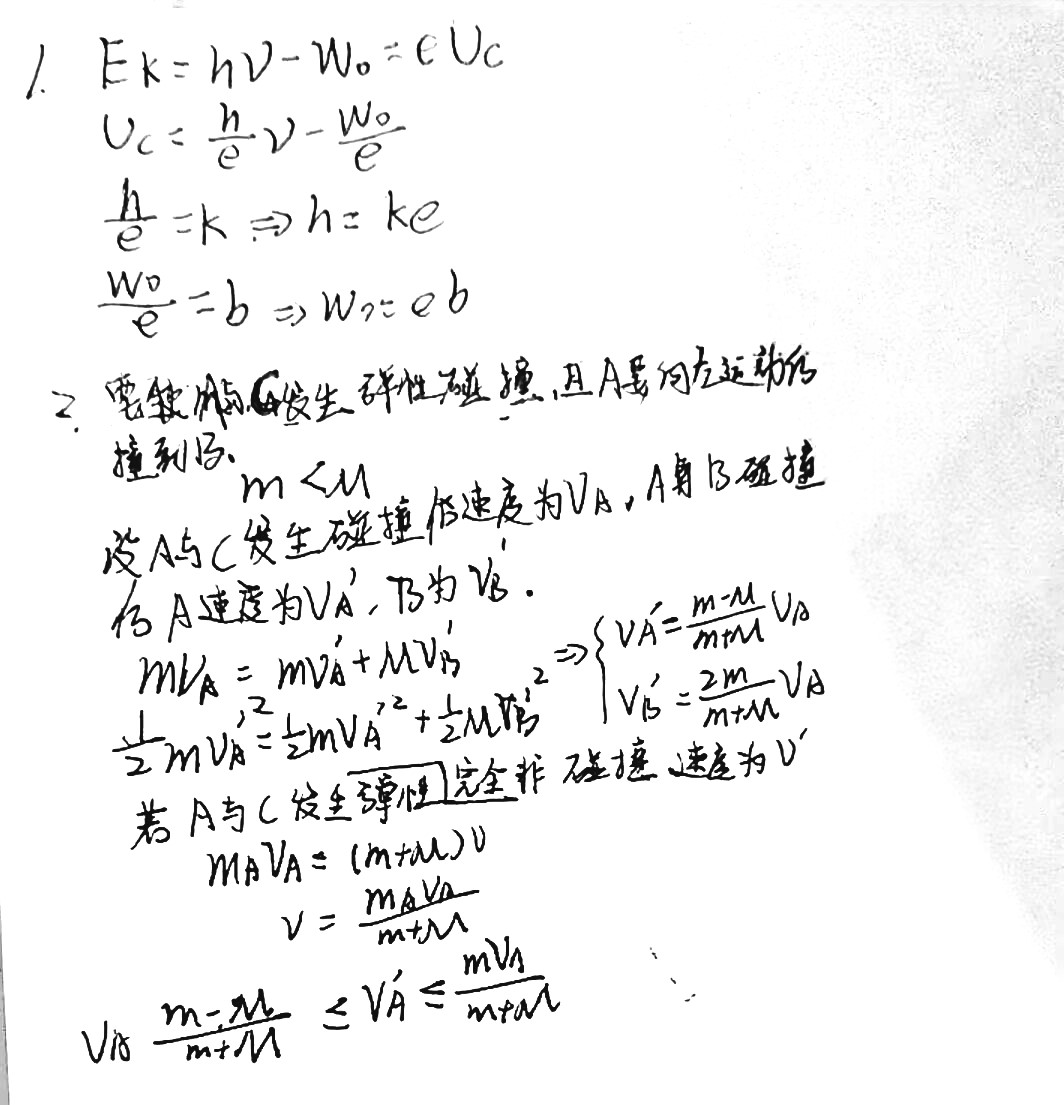 1. Ek = hν - W₀ = eUc
Uc = h/e ν - W₀/e
h/e = k ⇒ h = ke
W₀/e = b ⇒ W₀ = eb
2. 要使A与C发生弹性碰撞,且A要向左运动后
撞到B、
m < M
设A与C发生碰撞后速度为VA,A与B碰撞
后A速度为VA′,B为VB′.
mVA = mVA′ + MVB′ ⇒ { VA′ = (m-M)/(m+M) VA
1/2 mVA′² = 1/2 mVA′² + 1/2 MVB′² VB′ = 2m/(m+M) VA
若A与C发生弹性完全非碰撞 速度为V′
mAVA = (m+M)V
V = mAVA/(m+M)
VA (m-M)/(m+M) ≤ VA′ ≤ mVA/(m+M)